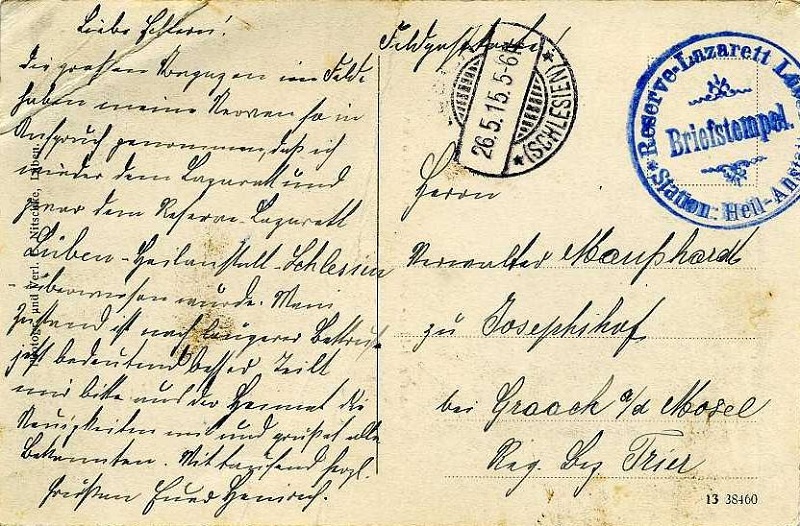 Liebe Eltern!
Die großen Strapazen im Felde
haben meine Nerven so in
Anspruch genommen, daß ich
wieder dem Lazarett und
zwar dem Reserve-Lazarett
Lüben-Heilanstalt-Schlesien
überwiesen wurde. Mein
Zustand ist nach längerer Bettruhe
jetzt bedeutend besser. Teilt
mir bitte aus der Heimat die
Neuigkeiten mit und grüßet alle
Bekannten. Mit tausend herzl.
Grüßen Euer Heinrich.
Photogr. und Verl. Nitschke, Lüben.
Feldpostkarte!
26.5.15. 5-6
* (SCHLESIEN) *
* Reserve-Lazarett Lüben
Briefstempel.
* Station: Heil-Anst
Herrn
Verwalter Manphardt
zu Josephshof
bei Graach a/d Mosel
Reg. Bez Trier
13 38460